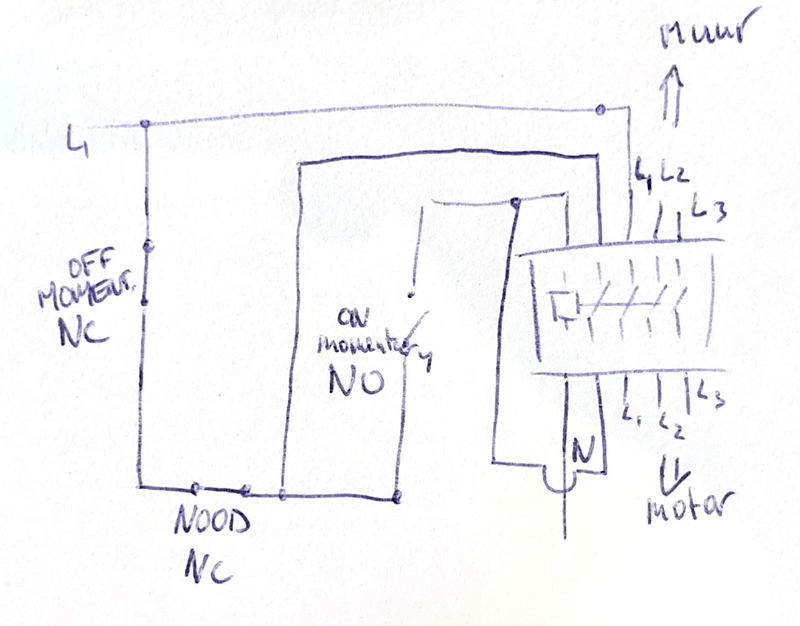 Muur
L1
L1 L2
L3
OFF
MOMENT.
NC
ON
momentary
NO
N
L1
L2
L3
NOOD
NC
motor